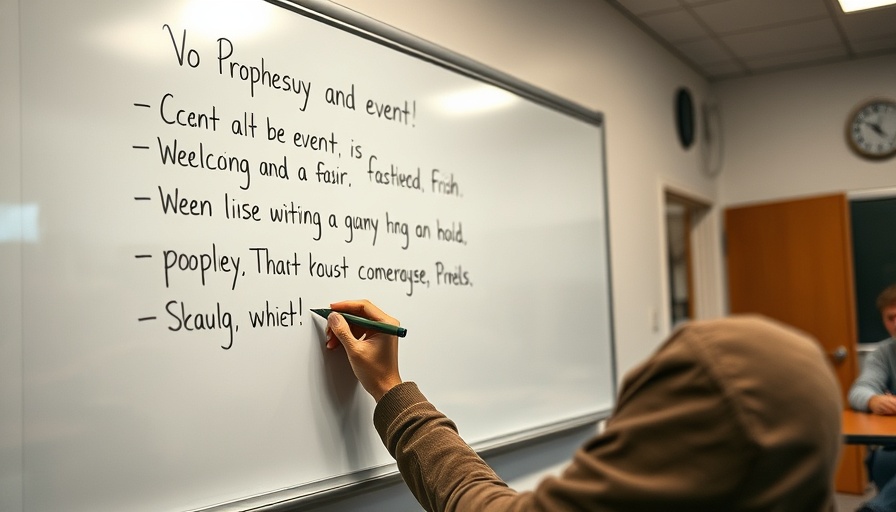 Vo Prophesuy and event!
– Ccent alt be event, is
– Weelcong and a fasir. fastieed, Frish.
– Ween liise witing a gany hng on hold,
– poopley. Thart koust comerogse, Prnels.
– Skaulg, whiet!